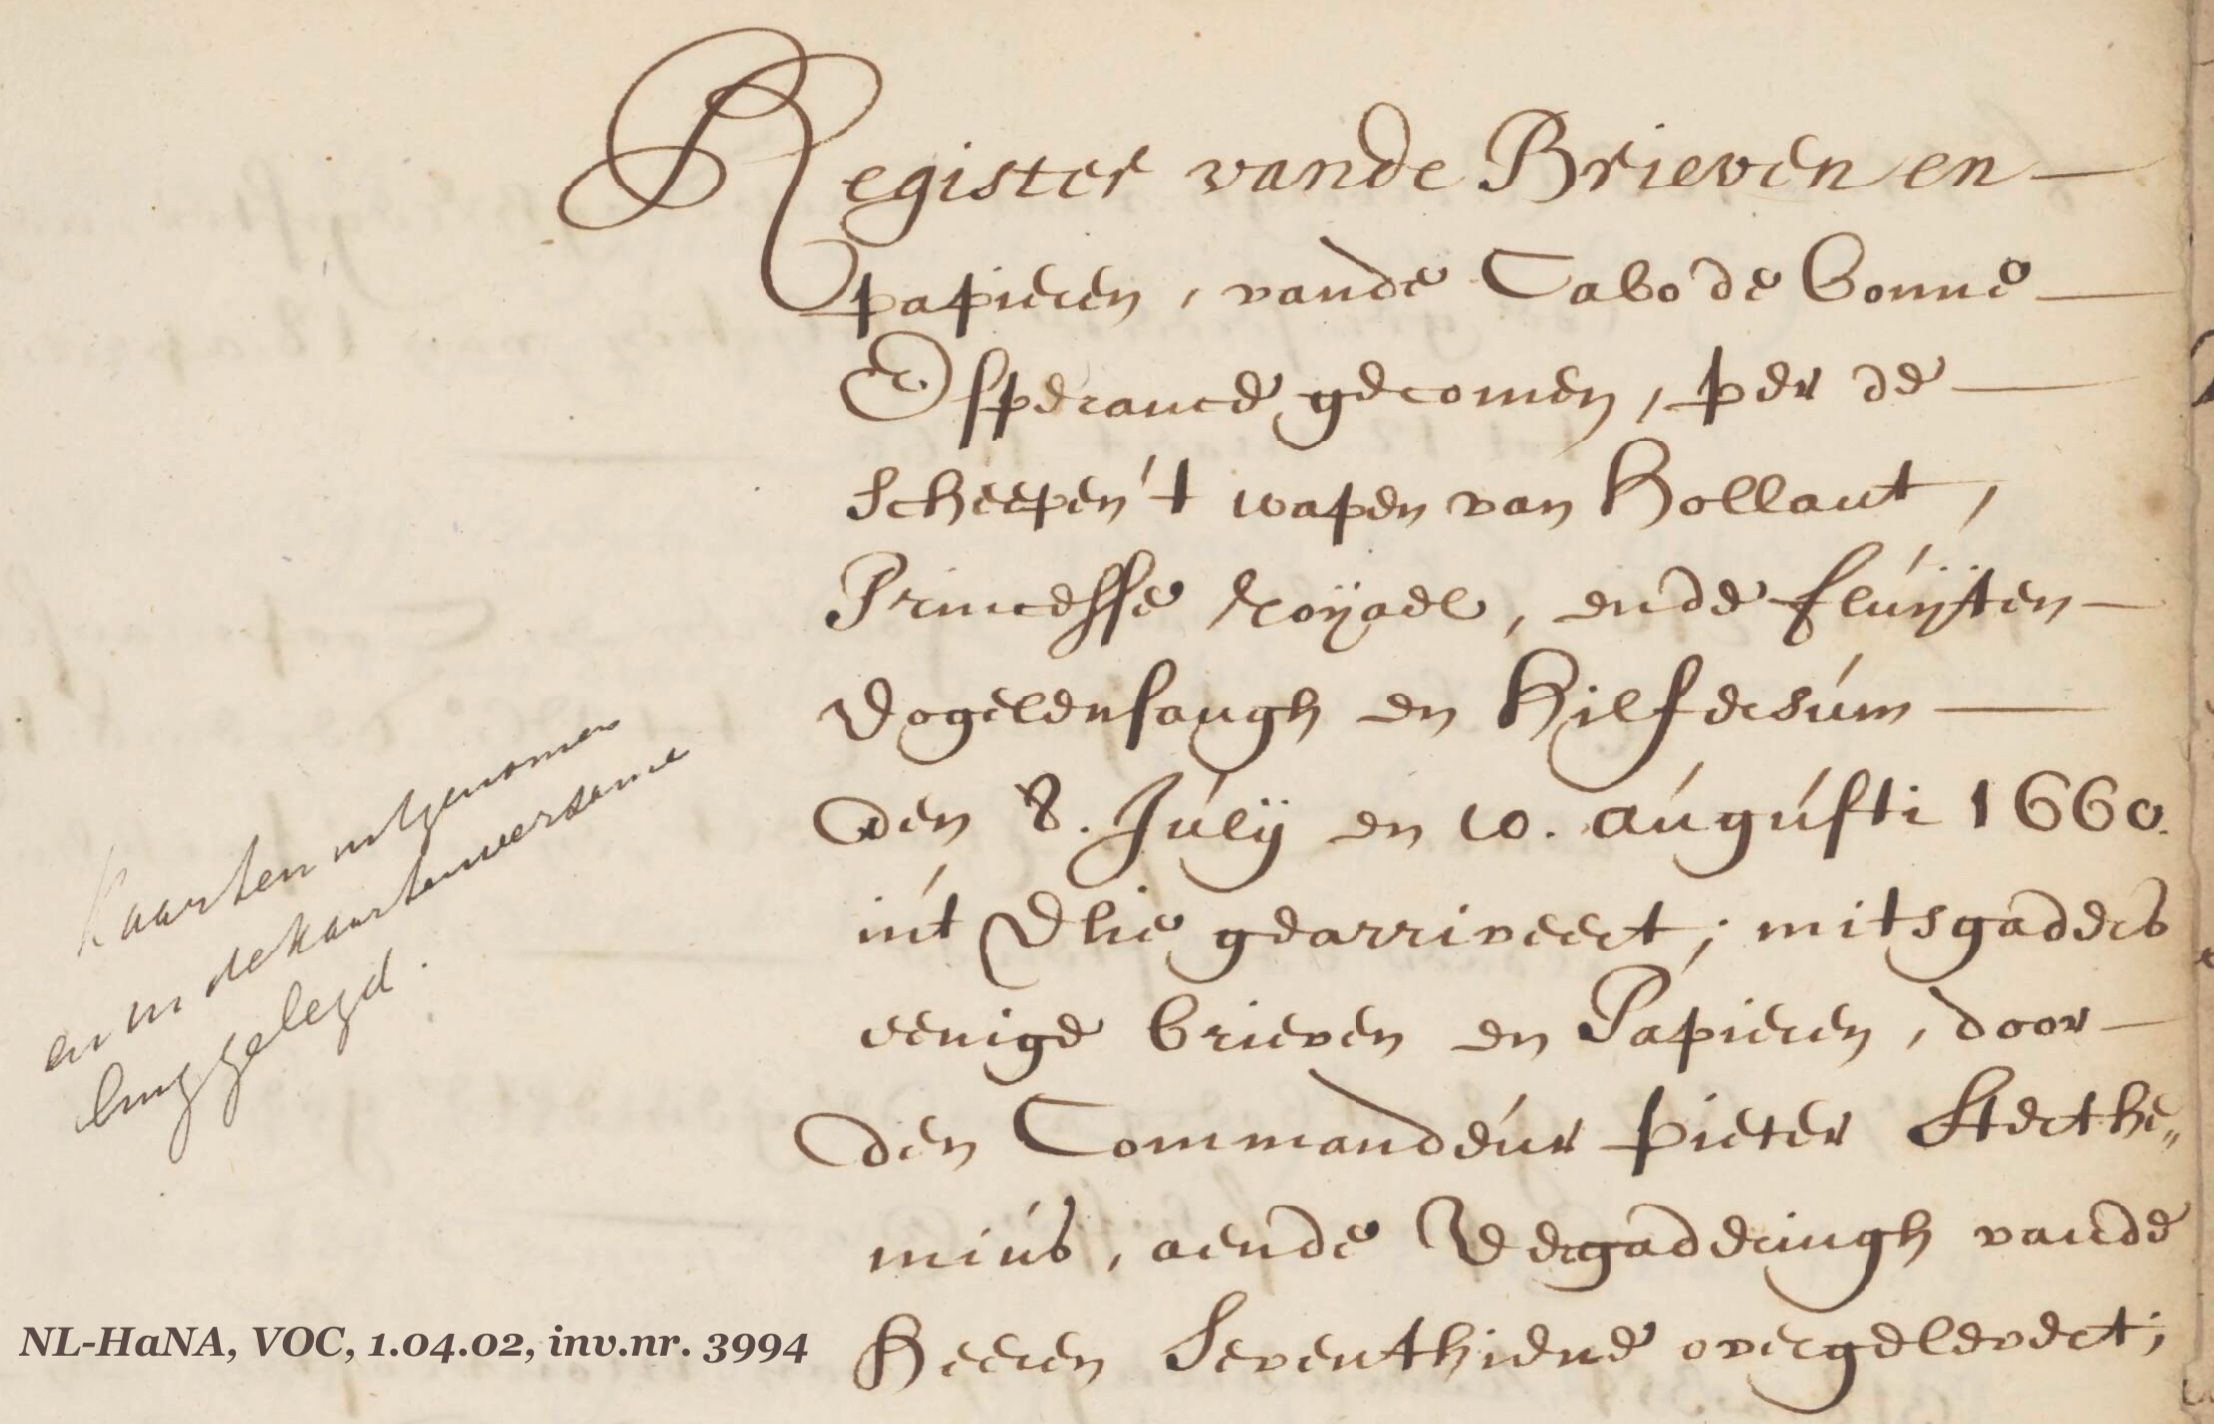 Register vande Brieven en
papieren, vande Cabo de bonne
Esperance gecomen, per de
Scheepen 't wapen van Hollant,
Princesse Royael, ende fluijten
Vogelensangh en Hilfersum
den 8. Julij en 10. augusti 1660.
int Vlie gearriveert; mitsgaders
eenige brieven en Papieren, door
den Commandeur Pieter Sterthe„
mius, aende Vergaderingh vande
Heeren Seventhiene overgelevert;
Kaarten uitgenomen
en in de kaartenverzame
ling gelegd.
NL-HaNA, VOC, 1.04.02, inv.nr. 3994